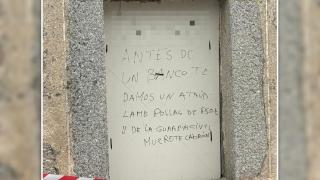 ANTES DE
UN BANCO TE
DAMOS UN ATAUD
LAME POLLAS DE PSOE
Y DE LA GUARDIACIVIL
MUERETE CABRÓN